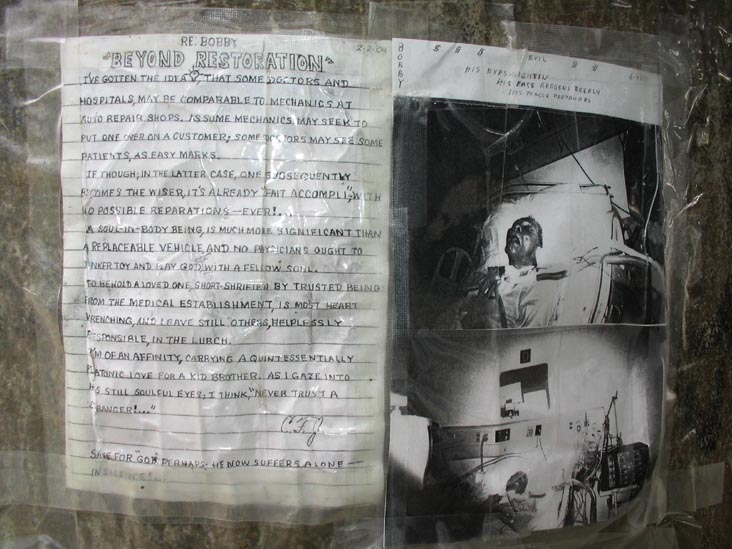 RE: BOBBY
2-2-04
"BEYOND RESTORATION"
I'VE GOTTEN THE IDEA, THAT SOME DOCTORS AND
HOSPITALS, MAY BE COMPARABLE TO MECHANICS AT
AUTO REPAIR SHOPS. AS SOME MECHANICS MAY SEEK TO
PUT ONE OVER ON A CUSTOMER; SOME DOCTORS MAY SEE SOME
PATIENTS, AS EASY MARKS.
IF THOUGH; IN THE LATTER CASE, ONE SUBSEQUENTLY
BECOMES THE WISER, IT'S ALREADY "FAIT ACCOMPLI", WITH
NO POSSIBLE REPARATIONS—EVER!...
A SOUL-IN-BODY BEING, IS MUCH MORE SIGNIFICANT THAN
A REPLACEABLE VEHICLE, AND NO PHYSICIANS OUGHT TO
TINKER TOY AND PLAY GOD WITH A FELLOW SOUL.
TO BEHOLD A LOVED ONE SHORT-SHRIFTED BY TRUSTED BEING
FROM THE MEDICAL ESTABLISHMENT, IS MOST HEART
WRENCHING, AND LEAVE STILL OTHERS, HELPLESSLY
RESPONSIBLE, IN THE LURCH.
I'M OF AN AFFINITY, CARRYING A QUINTESSENTIALLY
PLATONIC LOVE FOR A KID BROTHER. AS I GAZE INTO
HIS STILL SOULFUL EYES; I THINK, "NEVER TRUST A
STRANGER!..."
C.F.J.
SAVE FOR "GOD" PERHAPS: HE NOW SUFFERS ALONE—
IN SILENCE!...
BOBBY
EVIL
HIS EYES
HIS FACE REDDENS DEEPLY
HIS TONGUE PROTRUDES